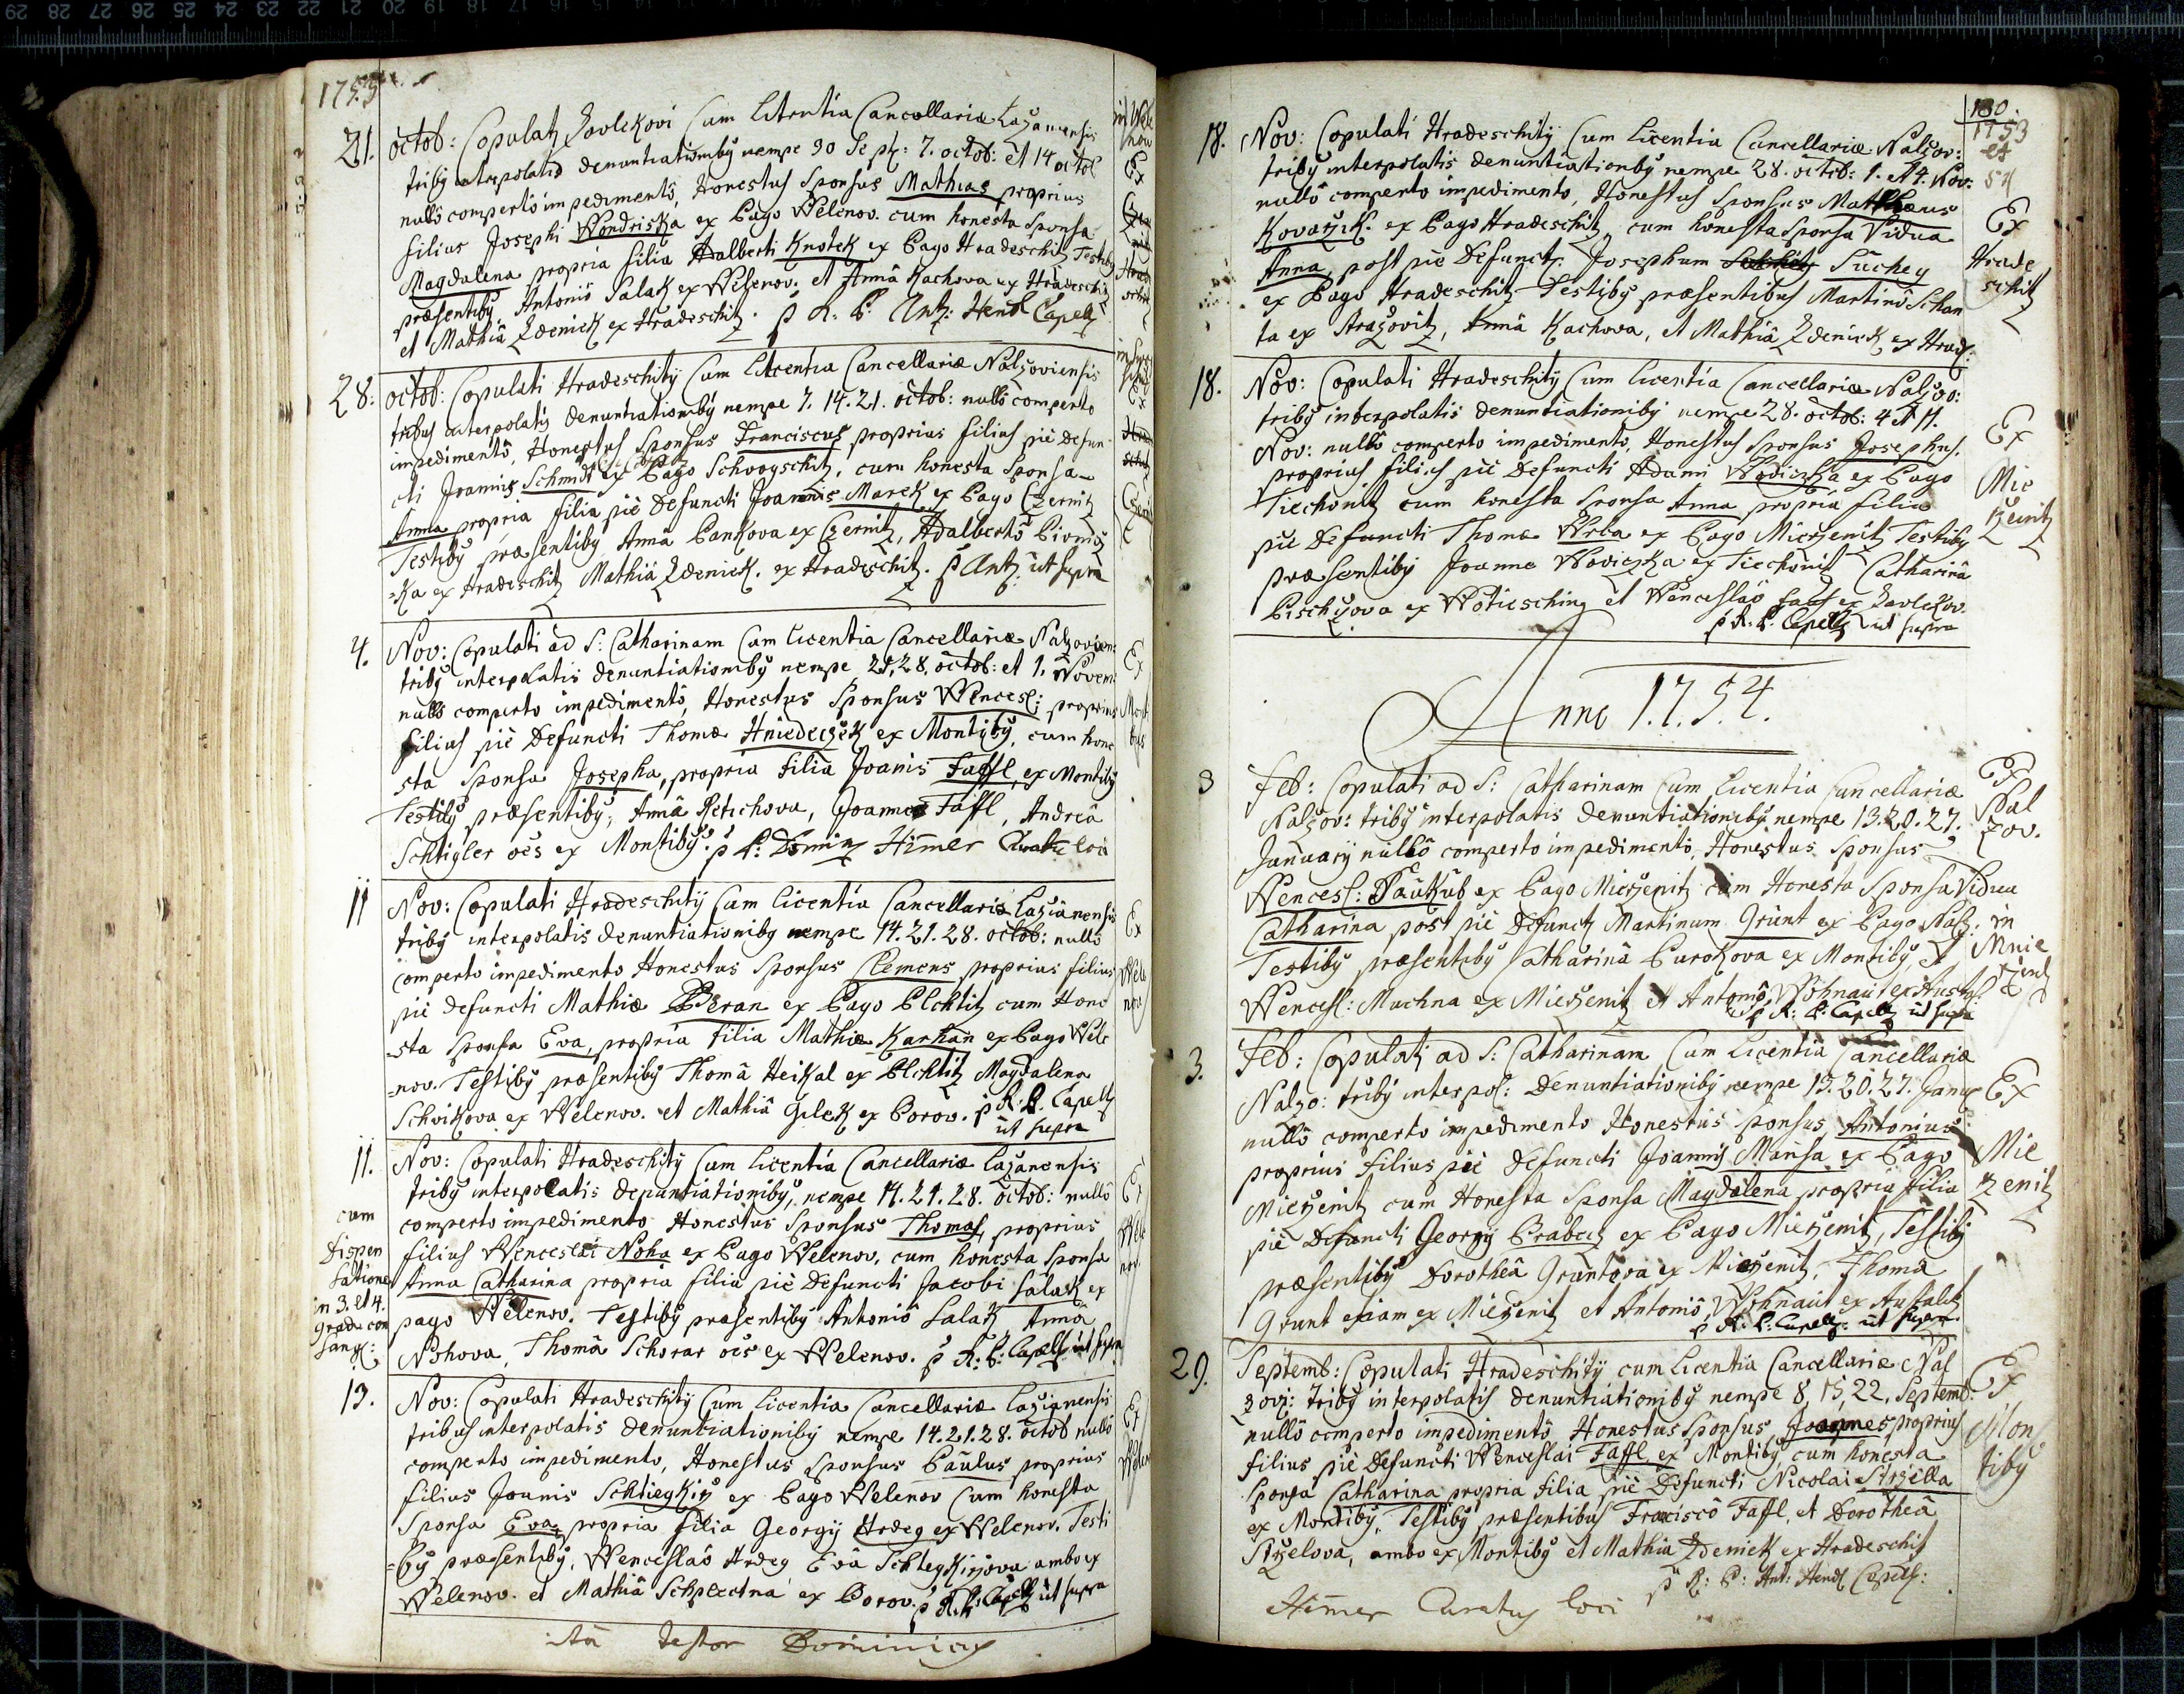 1753
21. octob: Copulatj Zavlekovi Cum Licentia Cancellariæ Lažanensis
triby interpolatis denuntiationiby nempe 30 Sept: 7. octob: et 14 octob
nullô compertô impedimentô, Honestus Sponsus Mathias proprius
filius Josephi Wondriska ex Pago Welenov. cum honesta Sponsa
Magdalena propria filia Adalberti Knotek ex Pago Hradeschitz Testiby
præsentiby Antoniô Salak ex Welenov. et Annâ Kachova ex Hradeschitz
et Mathiâ Zdenick ex Hradeschitz. p R: P. Ant: Hendl Capell
28. octob: Copulati Hradeschity Cum Licentia Cancellariæ Nalžoviensis
tribus interpolatis denuntiationiby nempe 7. 14. 21. octob: nullô comperto
impedimentô, Honestus Sponsus Franciscus proprius filius piè defun
cti Joannis Schmidt ex Pago Schwoyschitz, cum honesta Sponsa
Anna propria filia piè Defuncti Joannis Marek ex Pago Czernitz
Testiby præsentiby Annâ Pankova ex Czernitz, Adalbertô Pivniczka
ex Hradeschitz Mathiâ Zdenick. ex Hradeschitz. p Ant: ut supra
4. Nov: Copulati ad S: Catharinam Cum Licentia Cancellariæ Nalžovien:
triby interpolatis denuntiationiby nempe 21, 28. octob: et 1. Novem:
nullô comperto impedimentô, Honestus Sponsus Wencesl: proprius
filius piè Defuncti Thomæ Hniedeczek ex Montiby, cum hone
sta Sponsa Josepha, propria filia Joanis Faffl, ex Montiby
Testiby præsentiby, Annâ Retichova, Joanne Faffl, Andreâ
Schtigler oēs ex Montiby. p P: Domin Himer Curatu loci
11 Nov: Copulati Hradeschity Cum Licentia Cancellariæ Lažianensis
triby interpolatis denuntiationiby nempe 14. 21. 28. octob: nullô
comperto impedimento Honestus Sponsus Clemens proprius filius
piè defuncti Mathiæ Beran ex Pago Elchtitz cum Hone
sta Sponsa Eva, propria filia Mathiæ Karhan ex Pago Wele
nov. Testiby præsentiby Thomâ Heikal ex Elchtitz Magdalena
Schvikova ex Welenov. et Mathiâ Gilek ex Porov. p R: P. Capell
ut supra
11. Nov: Copulati Hradeschity Cum Licentia Cancellariæ Lažanensis
triby interpolatis denuntiationiby, nempe 14. 21. 28. octob: nullô
comperto impedimento Honestus Sponsus Thomas, proprius
filius Wenceslai Noha ex Pago Welenov. cum honesta Sponsa
Anna Catharina propria filia piè Defuncti Jacobi Salak ex
pago Welenov. Testiby præsentiby Antoniô Salak Annâ
Nohova, Thomâ Schorar oēs ex Welenov. p R: P: Capell ut supra
cum
dispen
satione
in 3. et 4.
gradu con
sang:
13. Nov: Copulati Hradeschity Cum Licentia Cancellariæ Lažianensis
tribus interpolatis denuntiationiby nempe 14. 21. 28. octob nullô
comperto impedimento, Honestus Sponsus Paulus proprius
filius Joanis Schtiegkin ex Pago Welenov Cum honesta
Sponsa Eva propria filia Georgij Hrdeg ex Welenov. Testi
by præsentiby, Wenceslaô Hrdeg Evâ Schtegkinova ambo ex
Welenov. et Mathiâ Schplectna ex Porov. p R: P: Capell ut supra
Ita testor Dominicus
180.
1753
et
54
18. Nov: Copulati Hradeschity Cum Licentia Cancellariæ Nalžov:
triby interpolatis denuntiationiby nempe 28. octob: 1. et 4. Nov.
nullô comperto impedimento, Honestus Sponsus Matthæus
Kovaržik. ex Pago Hradeschitz, cum honesta Sponsa Vidua
Anna post piè Defunct: Josephum Suchey
ex Pago Hradeschitz Testiby præsentibus Martinô Schan
ta ex Stražovitz, Annâ Kachova, et Mathiâ Zdenick ex Hrad:
Ex
Hrade
schitz
18. Nov: Copulati Hradeschity Cum Licentia Cancellariæ Nalžov:
triby interpolatis denuntiationiby nempe 28. octob: 4 et 11.
Nov: nullô comperto impedimento, Honestus Sponsus Josephus.
proprius filius piè Defuncti Adami Wodiczka ex Pago
Tiechonitz cum honesta Sponsa Anna propria filia
piè Defuncti Thomæ Wrba ex Pago Mieczenitz Testiby
præsentiby Joanne Wodiczka ex Tiechonitz Catharinâ
Pischjova ex Wotieschin et Wenceslaô ex Zavlekov.
p R: P. Capell ut supra
Ex
Mie
Anno 1754.
3 Feb: Copulati ad S: Catharinam Cum Licentia Cancellariæ
Nalžov: triby interpolatis denuntiationiby nempe 13. 20. 27.
Januarij nullô comperto impedimentô, Honestus Sponsus
Wencesl: Paukub ex Pago Mieczenitz cum Honesta Sponsa Vidua
Catharina post piè Defunct Martinum Grunt ex Pago Nalž:
Testiby præsentiby Catharinâ Purokova ex Montiby, et
Wencesl: Muchna ex Mieczenitz et Antoniô Wohnaut ex Austal:
p R: P: Capell ut supra
Ex
Nal
žov.
in
Mnie
3. Feb: Copulatj ad S: Catharinam Cum Licentia Cancellariæ
Nalžo: triby interpol: denuntiationiby nempe 13. 20. 27. Janua
nullô comperto impedimento Honestus sponsus Antonius
proprius filius piè defuncti Joannis Mansa ex Pago
Mieczenitz cum Honesta Sponsa Magdalena propria filia
piè Defuncti Georgij Brabecz ex Pago Mieczenitz, Testiby
præsentiby Dorotheâ Gruntova ex Mieczenitz, Thoma
Grunt etiam ex Mieczenitz et Antoniô Wohnaut ex Austalitz
p R: P: Capell: ut supra
Ex
Mie
zenitz
29. Septemb: Copulati Hradeschity cum Licentia Cancellariæ Nal
žovi: triby interpolatis denuntiationiby nempe 8, 15, 22. Septemb:
nullô comperto impedimentô Honestus Sponsus, Joannes proprius
filius piè Defuncti Wenceslai Faffl ex Montiby cum honesta
Sponsa Catharina propria filia piè Defuncti Nicolai Stržella
ex Montiby, Testiby præsentibus Franciscô Faffl, et Dorotheâ
Strželova, ambo ex Montiby et Mathia Zdenick ex Hradeschitz
p R: P: Ant: Hendl Capell:
Ex
Mon
tiby
Himer Curatus loci